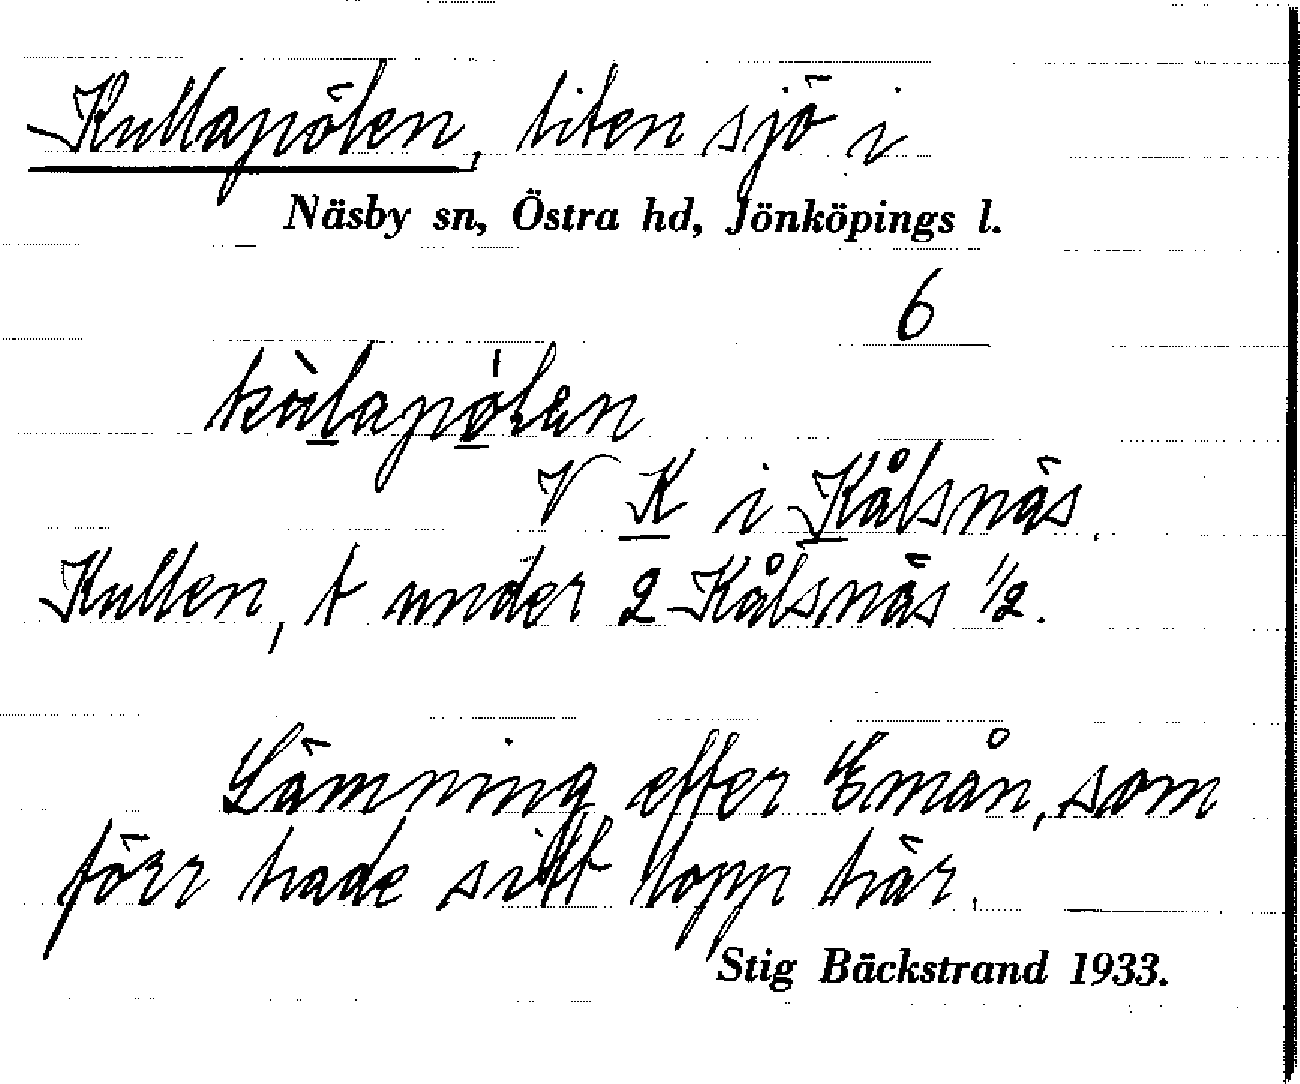 Kullapölen, liten sjö i
Näsby sn, Östra hd, Jönköpings l.
6
V K i Kålsnäs.
Kullen, t under 2 Kålsnäs 1/2.
Lämning efter Emån, som
förr hade sitt lopp här.
Stig Bäckstrand 1933.